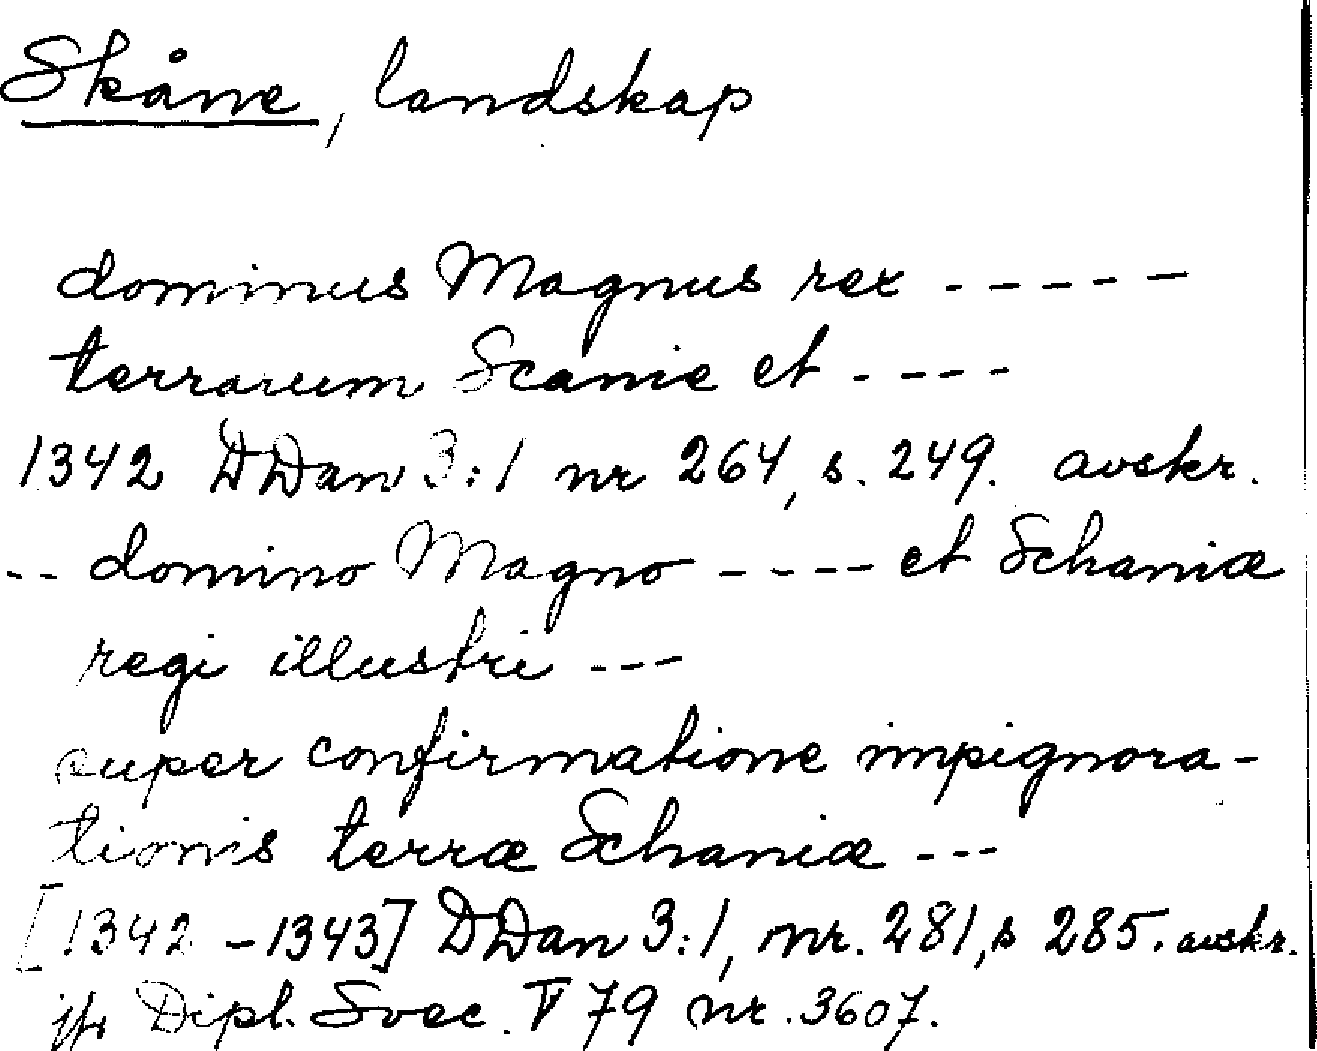 Skåne, landskap
dominus Magnus rex -----
terrarum Scanie et ----
1342 DDan 3:1 nr 264, s. 249. avskr.
-- domino Magno ---- et Schaniæ
regi illustri ---
super confirmatione impignora-
tionis terræ Schaniæ ---
[1342 - 1343] DDan 3:1, nr. 281, s 285. avskr.
jfr Dipl. Svec. V 79 nr. 3607.